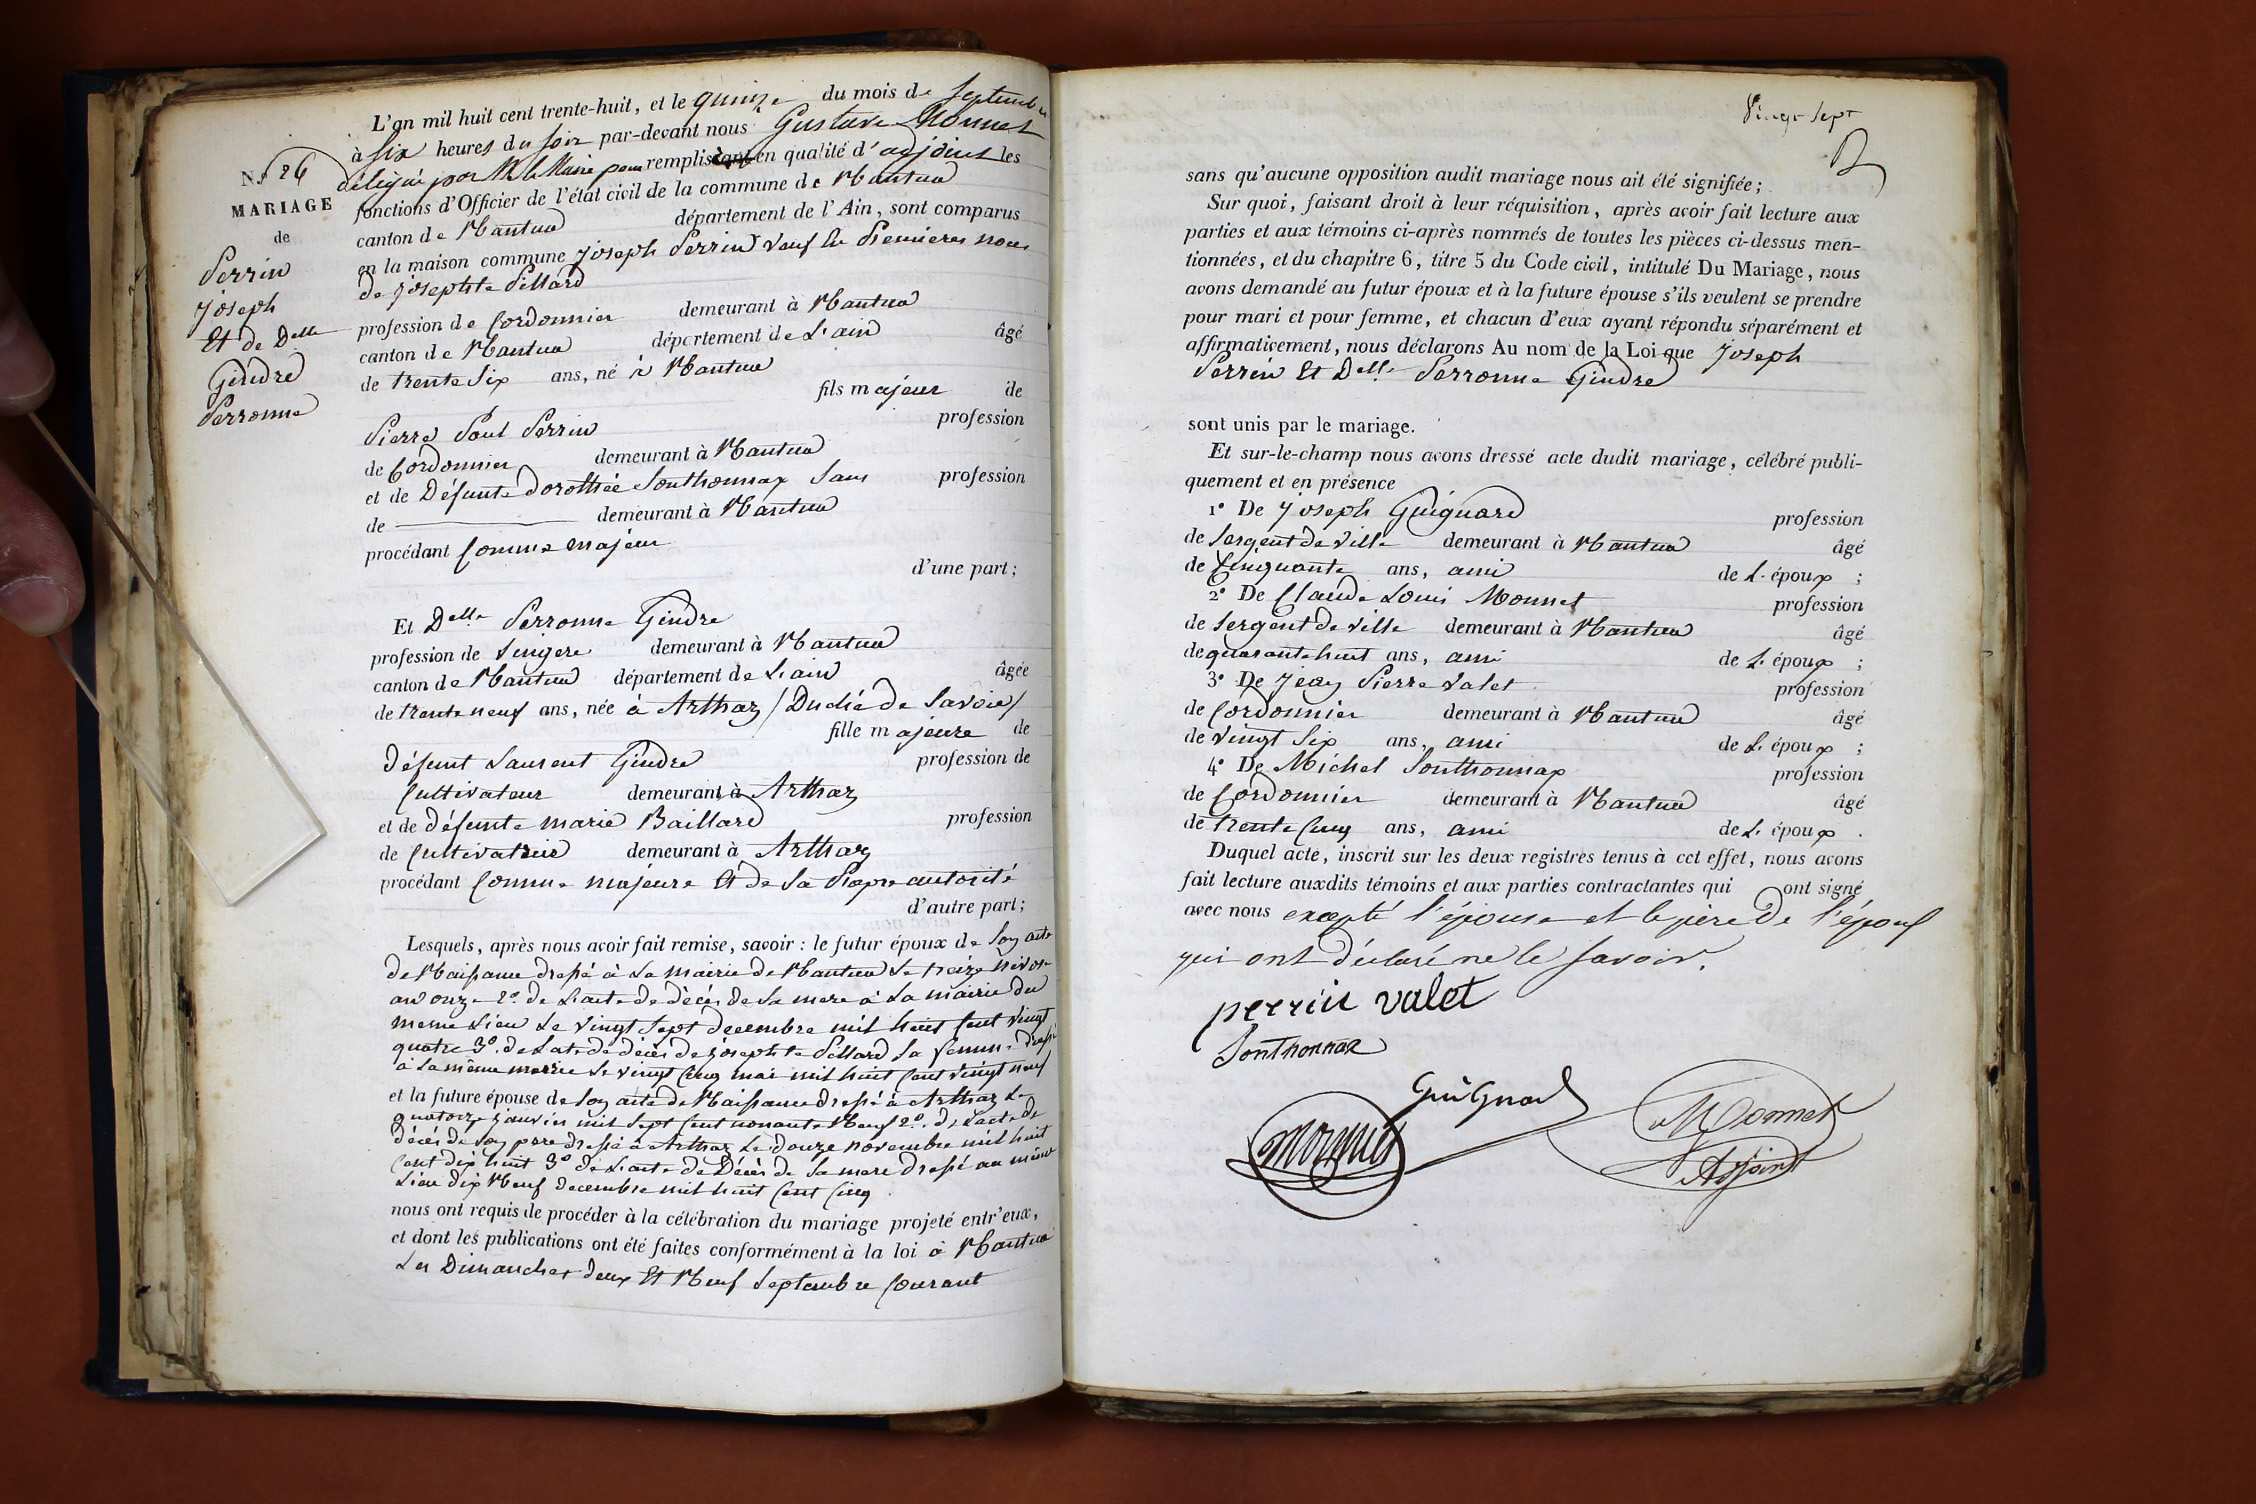 L'an mil huit cent trente-huit, et le quinze du mois de Septembre
à six heures du soir par-devant nous Gustave Monnet
délégué par Mr le Maire pour remplissant en qualité d'adjoint les
fonctions d'Officier de l'état civil de la commune de Nantua
canton de Nantua département de l'Ain, sont comparus
en la maison commune Joseph Perrin veuf en Premieres noces
de josephte Pillard
profession de Cordonnier demeurant à Nantua
canton de Nantua département de L'ain âgé
de trente Six ans, né à Nantua
fils majeur de
Pierre Paul Perrin profession
de Cordonnier demeurant à Nantua
et de Défunte dorothée Sonthonnax Sans profession
de demeurant à Nantua
procédant Comme majeur
d'une part;
Et Delle Perronne Gindre
profession de Lingere demeurant à Nantua
canton de Nantua département de L'ain âgée
de trente neuf ans, née à Arthaz / Duché de Savoie /
fille majeure de
défunt Laurent Gindre profession de
Cultivateur demeurant à Arthaz
et de défunte marie Baillard profession
de Cultivatrice demeurant à Arthaz
procédant Comme majeure Et de Sa Propre autorité
d'autre part;
Lesquels, après nous avoir fait remise, savoir : le futur époux de Son acte
de Naissance dressé à La mairie de Nantua Le treize Nivose
an onze 2º. de L'acte de décès de Sa mere à La mairie du
meme Lieu Le vingt Sept decembre mil huit Cent vingt
quatre 3º. de L'acte de décès de josephte Pillard Sa femme dressé
à La même mairie Le vingt Cinq mai mil huit Cent vingt neuf
et la future épouse de Son acte de Naissance dressé à Arthaz Le
quatorze janvier mil Sept Cent nonante Neuf 2º. de L'acte de
décès de Son pere dressé à Arthaz Le douze novembre mil huit
Cent dix huit 3º de L'acte de Décès de Sa mere dressé au même
Lieu dix Neuf decembre mil huit Cent Cinq
nous ont requis de procéder à la célébration du mariage projeté entr'eux,
et dont les publications ont été faites conformément à la loi à Nantua
Les Dimanches deux Et Neuf Septembre Courant
No 26
MARIAGE
de
Perrin
Joseph
Et de Delle
Gindre
Perronne
Vingt-Sept
sans qu'aucune opposition audit mariage nous ait été signifiée;
Sur quoi, faisant droit à leur réquisition, après avoir fait lecture aux
parties et aux témoins ci-après nommés de toutes les pièces ci-dessus men-
tionnées, et du chapitre 6, titre 5 du Code civil, intitulé Du Mariage, nous
avons demandé au futur époux et à la future épouse s'ils veulent se prendre
pour mari et pour femme, et chacun d'eux ayant répondu séparément et
affirmativement, nous déclarons Au nom de la Loi que Joseph
Perrin Et Delle Perronne Gindre
sont unis par le mariage.
Et sur-le-champ nous avons dressé acte dudit mariage, célébré publi-
quement et en présence
1º De Joseph Guignard profession
de Sergent de ville demeurant à Nantua âgé
de Cinquante ans, ami de L'époux ;
2º De Claude Louis Monnet profession
de Sergent de ville demeurant à Nantua âgé
de quarante huit ans, ami de L'époux ;
3º De Jean Pierre Valet profession
de Cordonnier demeurant à Nantua âgé
de vingt Six ans, ami de L'époux ;
4º De Michel Sonthonnax profession
de Cordonnier demeurant à Nantua âgé
de trente Cinq ans, ami de L'époux .
Duquel acte, inscrit sur les deux registres tenus à cet effet, nous avons
fait lecture auxdits témoins et aux parties contractantes qui ont signé
avec nous excepté l'épouse et le père de l'époux
qui ont déclaré ne le savoir.
perrin valet
Sonthonnax
Guignard
monnet
Monnet
Adjoint